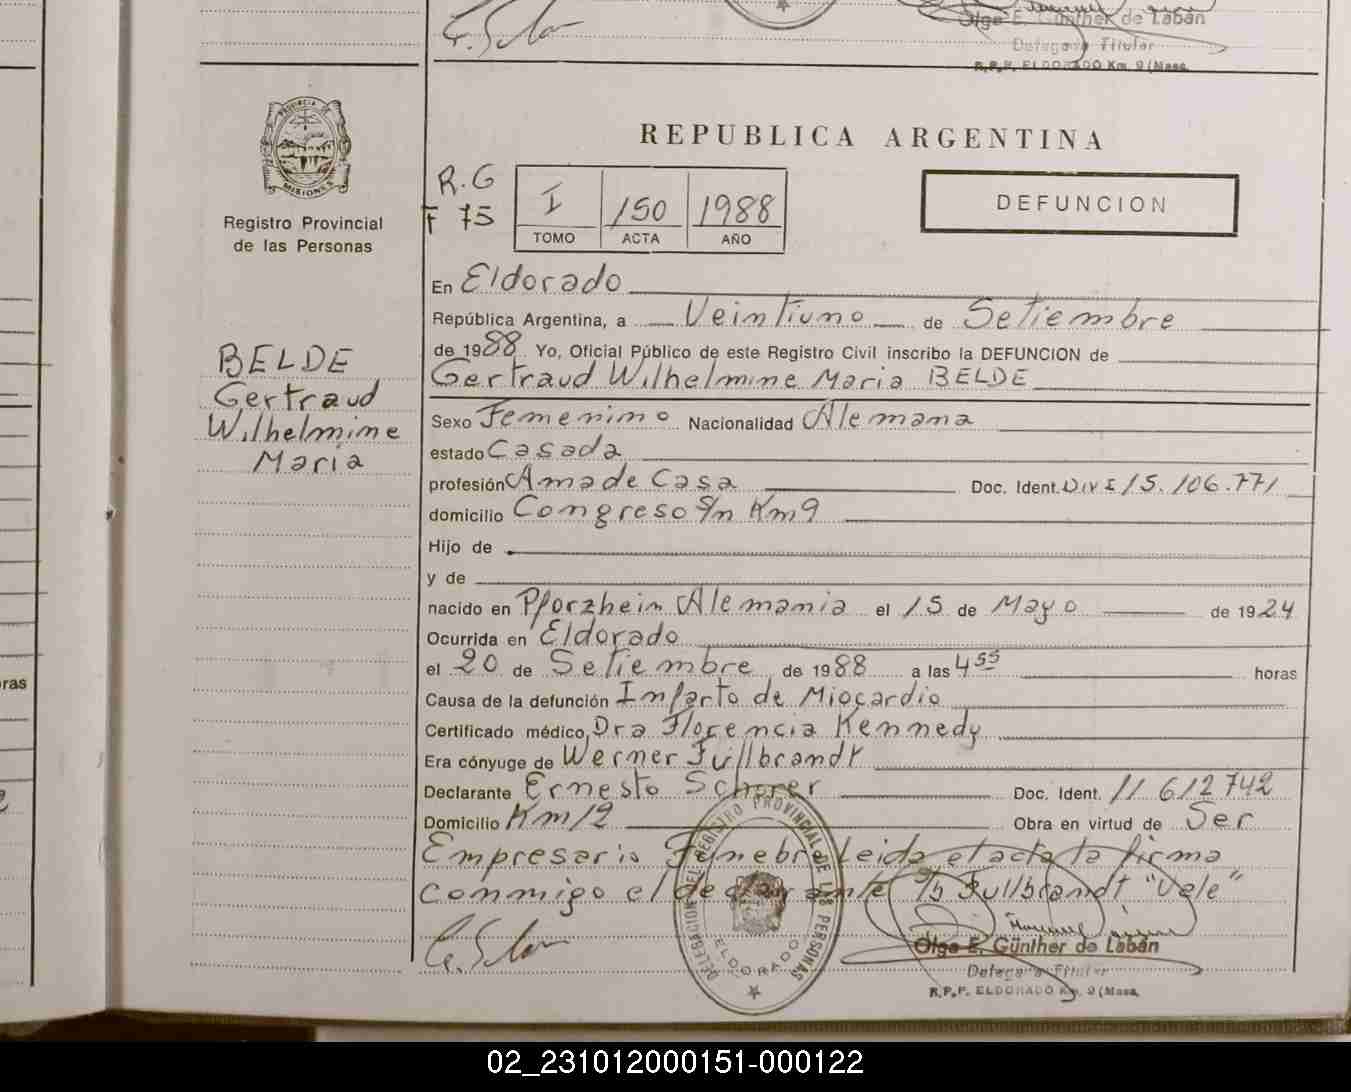 Olga E. Günther de Labán
Delegada Titular
R.P.P. ELDORADO Km. 9 (Mnes.
PROVINCIA DE
MISIONES
Registro Provincial
de las Personas
BELDE
Gertraud
Wilhelmine
Maria
REPUBLICA ARGENTINA
R.G
F 75
I 150 1988
TOMO ACTA AÑO
DEFUNCION
En Eldorado
República Argentina, a Veintiuno de Setiembre
de 1988 Yo, Oficial Público de este Registro Civil inscribo la DEFUNCION de
Gertraud Wilhelmine Maria BELDE
Sexo Femenino Nacionalidad Alemana
estado Casada
profesión Ama de Casa Doc. Ident. 15.106.771
domicilio Congreso S/n Km 9
Hijo de
y de
nacido en Pforzhein Alemania el 15 de Mayo de 1924
Ocurrida en Eldorado
el 20 de Setiembre de 1988 a las 4 55 horas
Causa de la defunción Infarto de Miocardio
Certificado médico Dra Florencia Kennedy
Era cónyuge de Werner Füllbrandt
Declarante Ernesto Scherer Doc. Ident. 11 612742
Domicilio Km 12 Obra en virtud de Ser
Empresario Funebre leida el acta la firma
conmigo el declarante S/b Fullbrandt "Vale"
DELEGACION DEL REGISTRO PROVINCIAL DE LAS PERSONAS
ELDORADO
Olga E. Günther de Labán
Delegada Titular
R.P.P. ELDORADO Km. 9 (Mnes.
ras
02_231012000151-000122